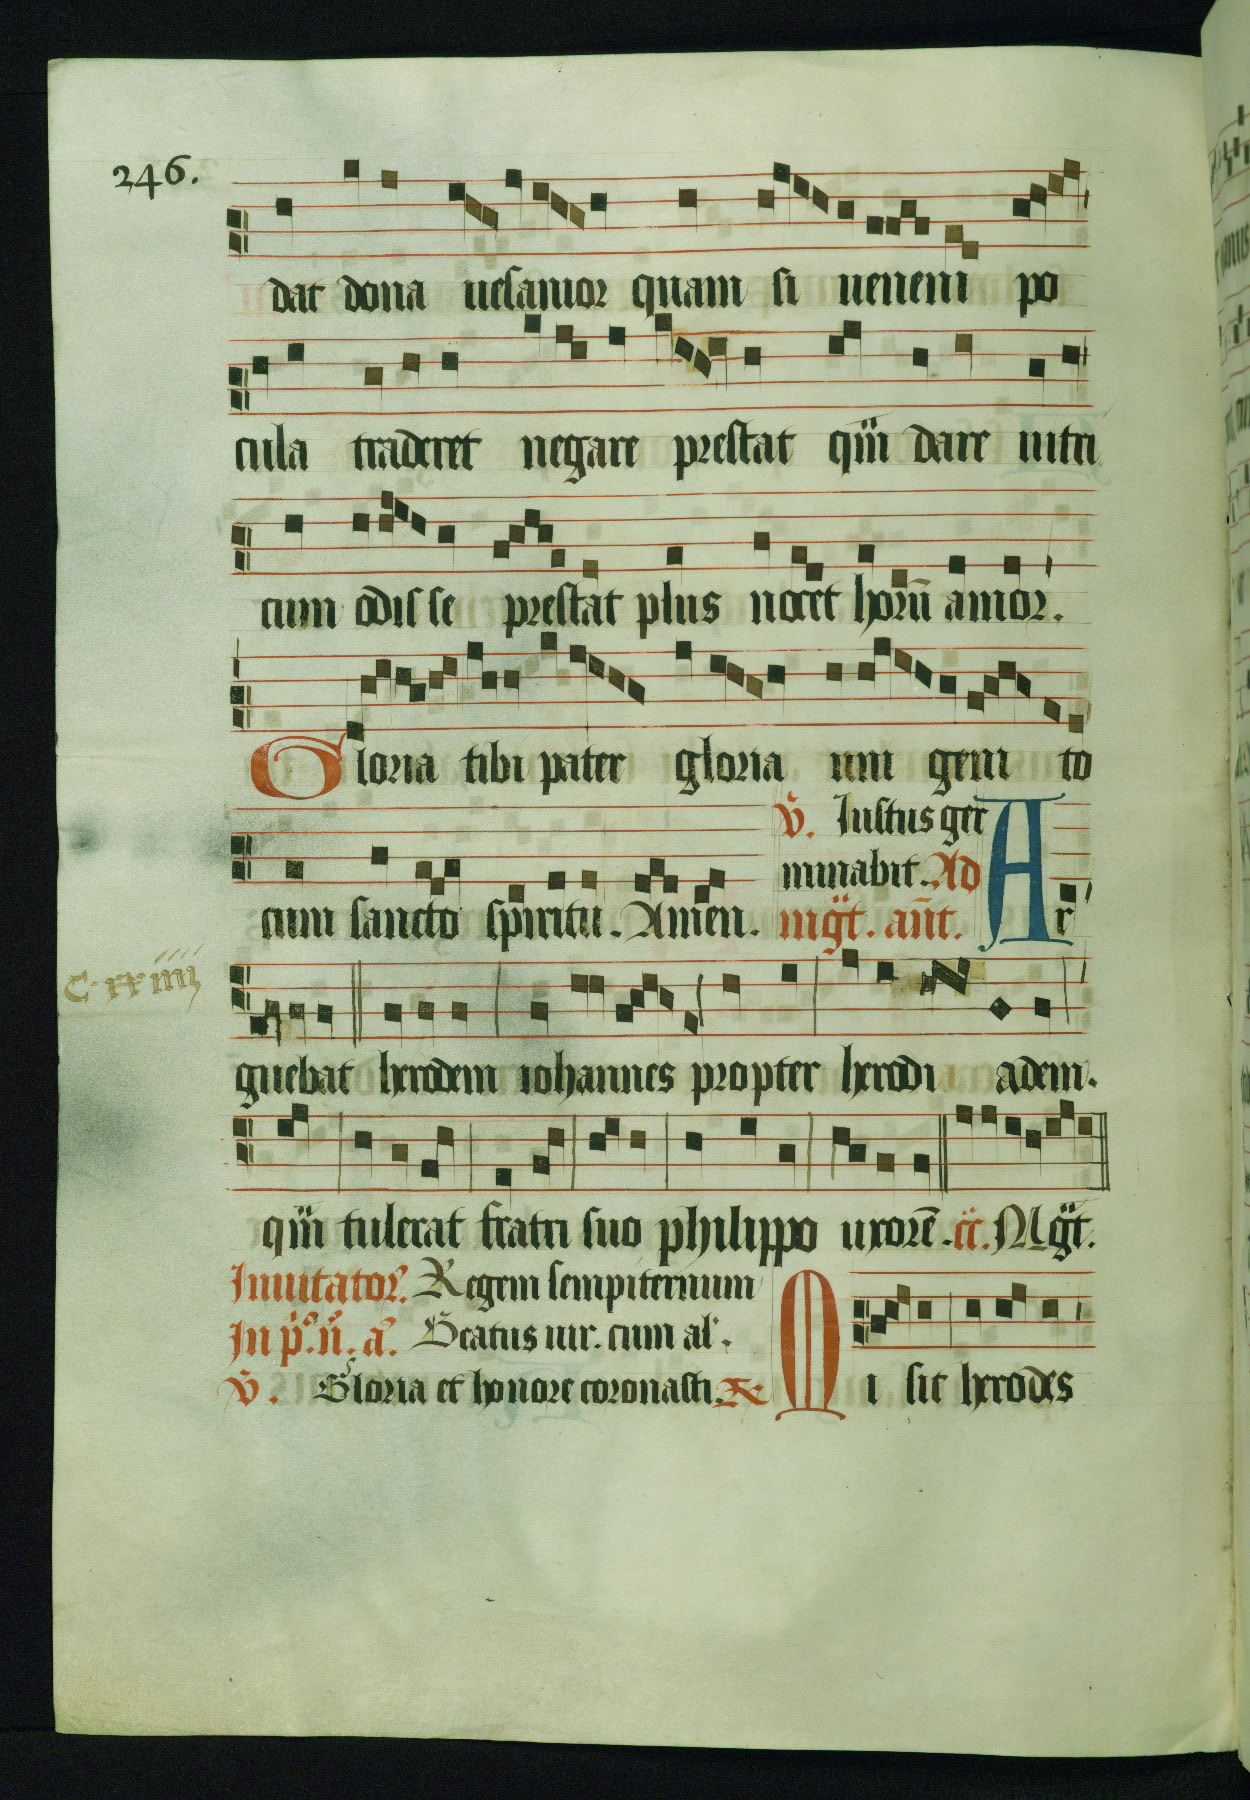 246.
dat dona uesanior quam si ueneni po
cula traderet negare prestat qm̄ dare uitri
cum odisse prestat plus nocet horū amor.
Gloria tibi pater gloria uni geni to
cum sancto spiritu. Amen.
V̄. Iustus ger
minabit. Ad
mgt̄. ant̄.
Ar
C. xxiiii
guebat herodem iohannes propter herodi adem.
qm̄ tulerat fratri suo philippo uxorē. c̄c̄. Mgt̄.
Inuitator̄. Regem sempiternum
In p̄o. n̄. a. Beatus uir. cum al'.
V̄. Gloria et honore coronasti. R̄
Mi sit herodes